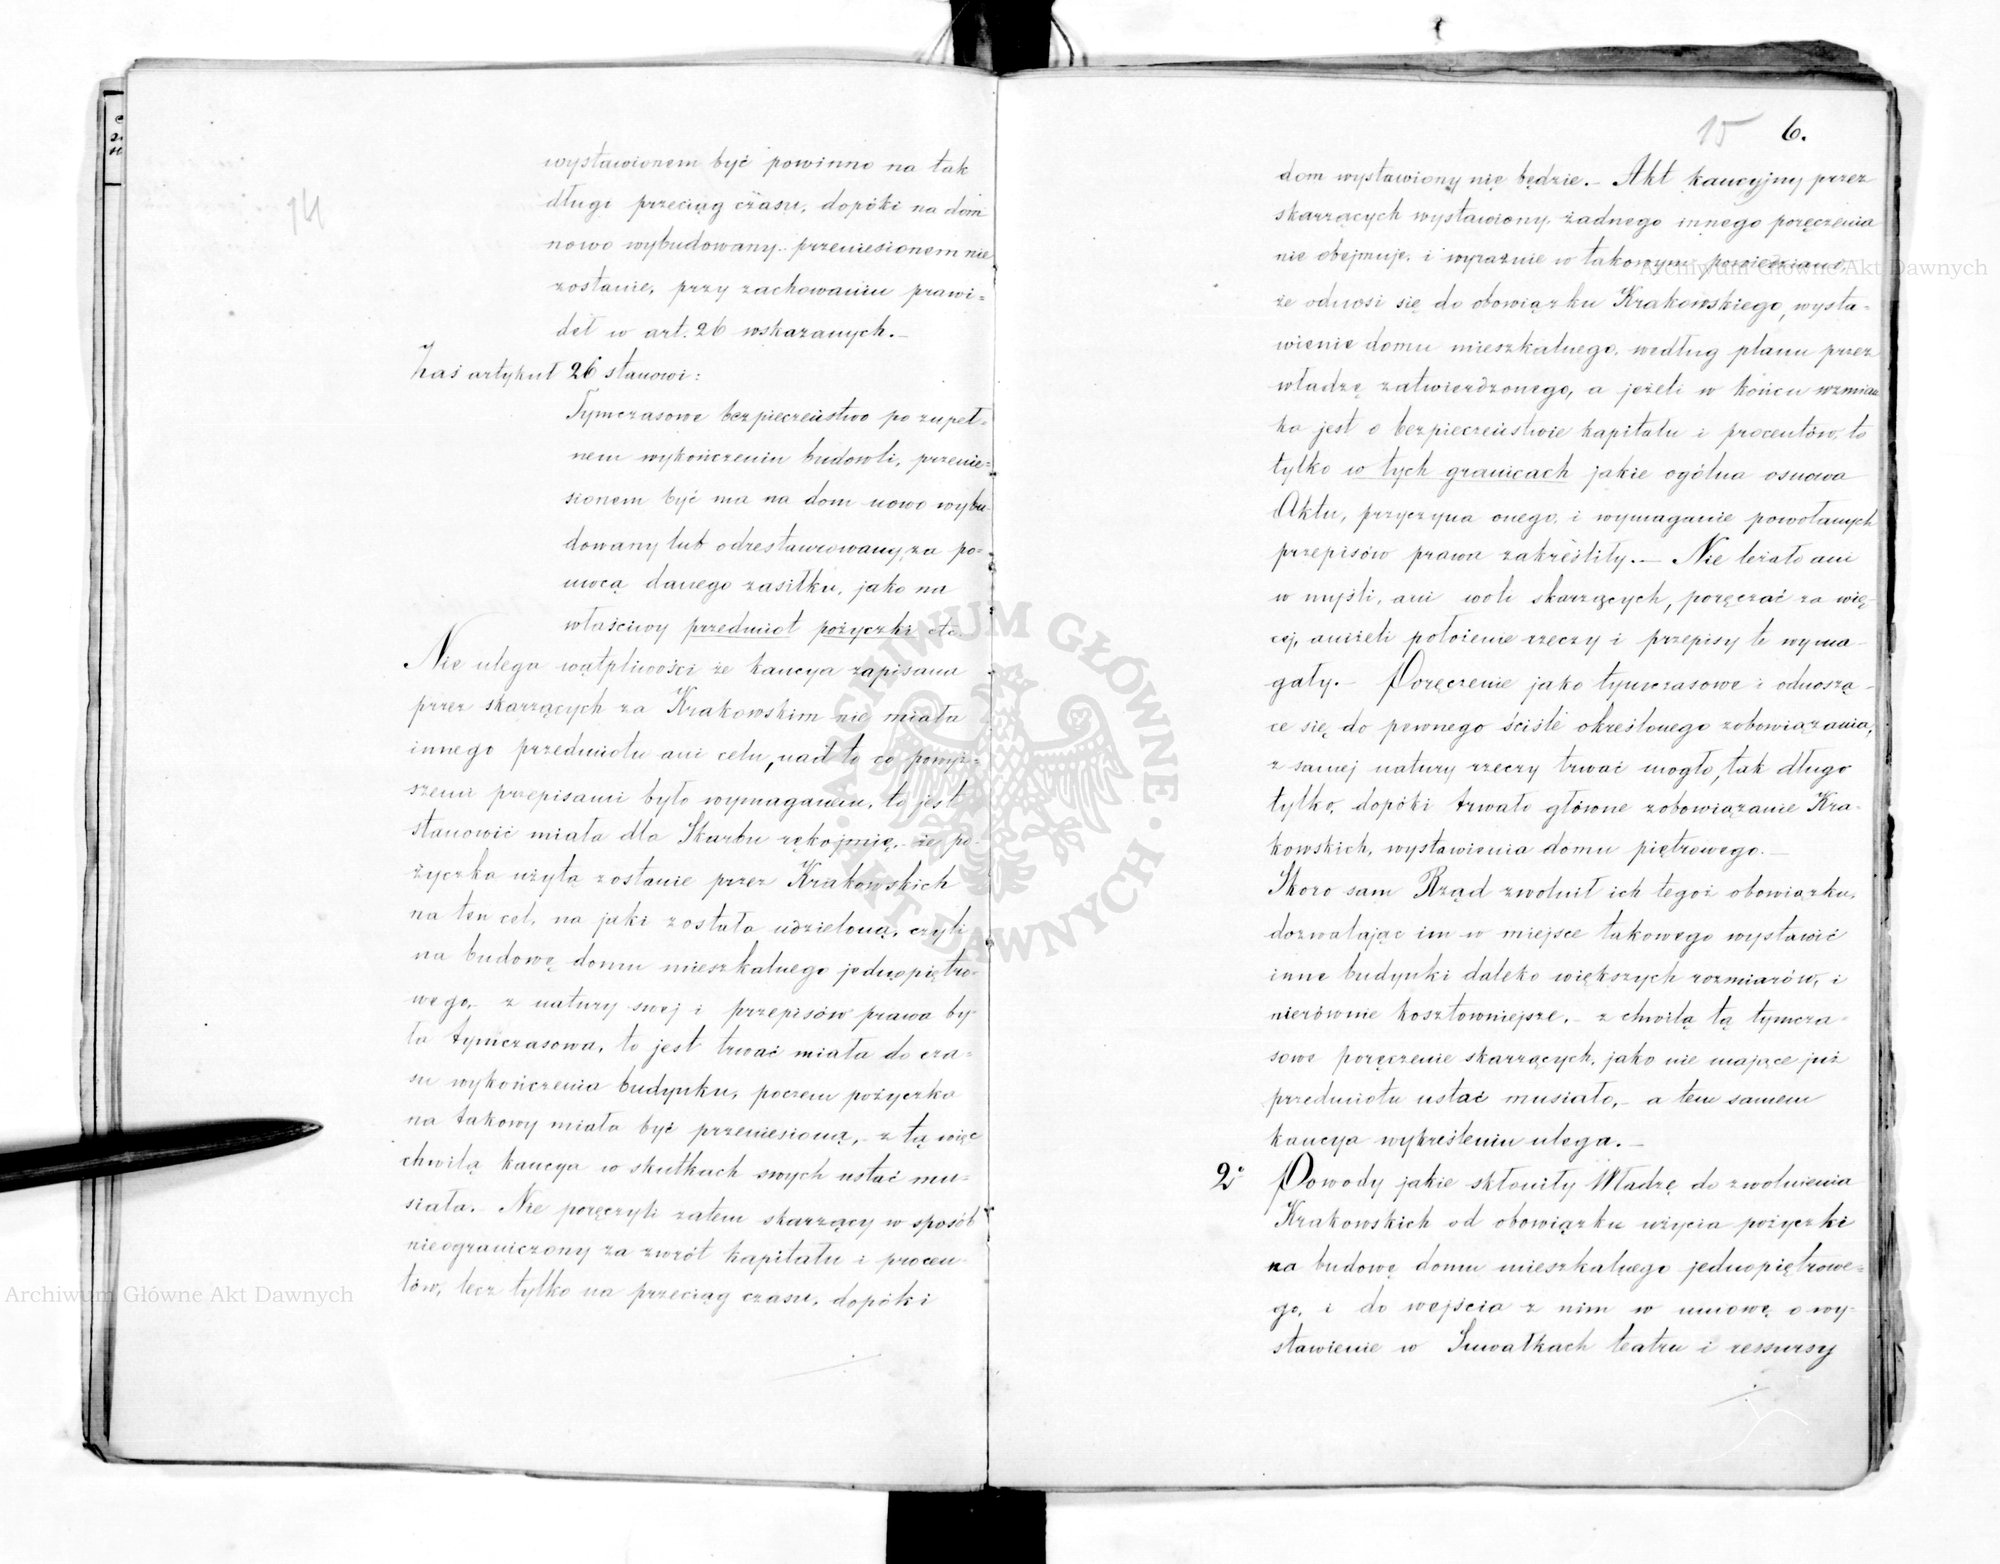 14
wystawionem być powinno na tak
długi przeciąg czasu, dopóki na dom
nowo wybudowany przeniesionem nie
zostanie, przy zachowaniu prawi=
deł w art. 26 wskazanych.–
Zaś artykuł 26 stanowi:
Tymczasowe bezpieczeństwo po zupeł=
nem wykończeniu budowli, przenie=
sionem być ma na dom nowo wybu-
dowany lub odrestaurowany, za po=
mocą danego zasiłku, jako na
właściwy przedmiot pożyczki etc.
Nie ulega wątpliwości że kaucya zapisana
przez skarzących za Krakowskim nie miała
innego przedmiotu ani celu, nad to co powyż=
szemi przepisami było wymaganem, to jest
stanowić miała dla Skarbu rękojmię,– że po-
życzka użytą zostanie przez Krakowskich
na ten cel, na jaki została udzieloną, czyli
na budowę domu mieszkalnego jednopiętro-
wego,– z natury swej i przepisów prawa by-
ła tymczasowa, to jest trwać miała do cza-
su wykończenia budynku, poczem pożyczka
na takowy miała być przeniesioną,– z tą więc
chwilą kaucya w skutkach swych ustać mu=
siała.– Nie poręczyli zatem skarzący w sposób
nieograniczony za zwrót kapitału i procen-
tów, lecz tylko na przeciąg czasu, dopóki
15 6.
dom wystawiony nie będzie.– Akt kaucyjny przez
skarzących wystawiony, żadnego innego poręczenia
nie obejmuje, i wyraźnie w takowym powiedziano,
że odnosi się do obowiązku Krakowskiego, wysta-
wienie domu mieszkalnego, według planu przez
władzę zatwierdzonego, a jeżeli w końcu wzmian
ka jest o bezpieczeństwie kapitału i procentów, to
tylko w tych granicach jakie ogólna osnowa
Aktu, przyczyna onego, i wymaganie powołanych
przepisów prawa zakreśliły.– Nie leżało ani
w myśli, ani woli skarzących, poręczać za wię-
cej, aniżeli położenie rzeczy i przepisy te wyma-
gały.– Poręczenie jako tymczasowe i odnoszą-
ce się, do pewnego ściśle określonego zobowiązania,
z samej natury rzeczy trwać mogło, tak długo
tylko, dopóki trwało główne zobowiązanie Kra-
kowskich, wystawienia domu piętrowego.–
Skoro sam Rząd zwolnił ich tegoż obowiązku,
dozwalając im w miejsce takowego wystawić
inne budynki daleko większych rozmiarów, i
nierównie kosztowniejsze,– z chwilą tą tymcza-
sowe poręczenie skarzących, jako nie mające już
przedmiotu ustać musiało,– a tem samem
kaucya wykreśleniu ulega.–
2° Powody jakie skłoniły Władzę do zwolnienia
Krakowskich od obowiązku użycia pożyczki
na budowę domu mieszkalnego jednopiętrowe=
go, i do wejścia z nim w umowę o wy-
stawienie w Suwałkach teatru i ressursy
Archiwum Główne Akt Dawnych
Archiwum Główne Akt Dawnych
ARCHIWUM GŁÓWNE · AKT DAWNYCH ·